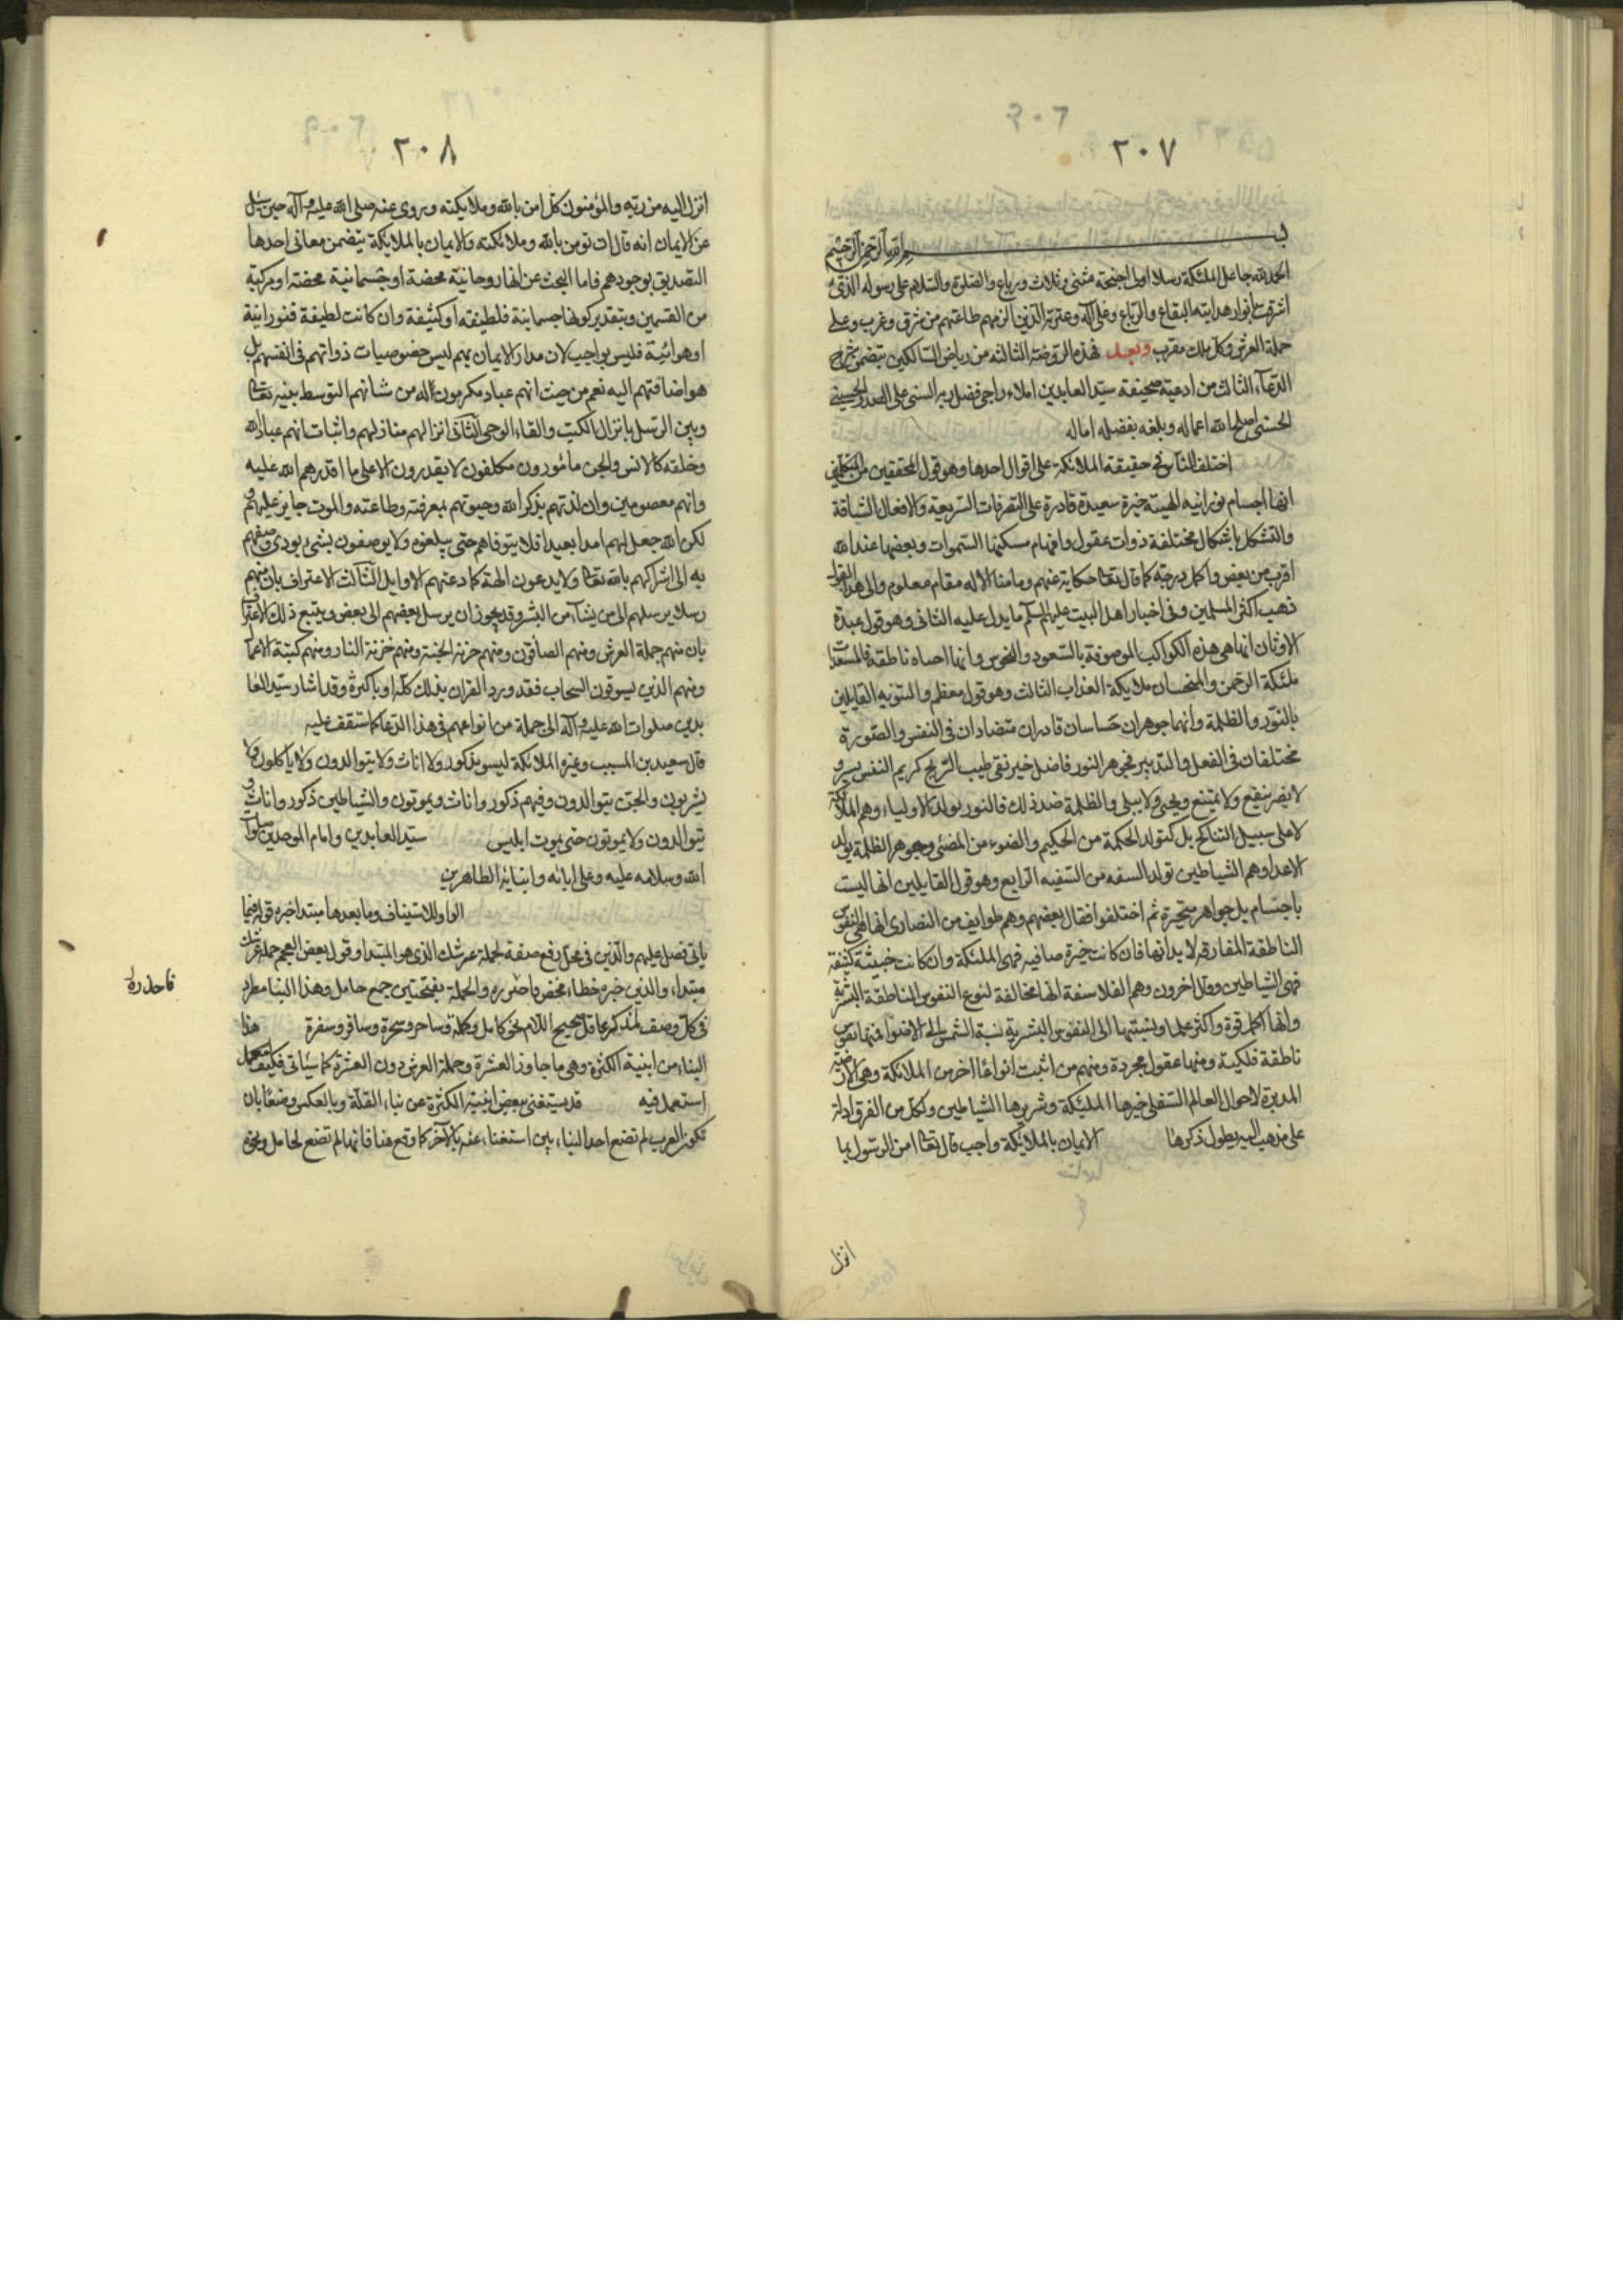 ٢٠٧
بسم الله الرحمن الرحيم
الحمد لله جاعل الملئكة رسلا اولى اجنحة مثنى وثلاث ورباع والصلوة والسلام على رسوله الذى
اشرقت بانوار هدايته البقاع والرباع وعلى آله وعترته الذين الزمهم طاعتهم من شرق وغرب وعلى
حملة العرش وكل ملك مقرب وبعد فهذه الروضة الثالثه من رياض السالكين يتضمن شرح
الدعآء الثالث من ادعية صحيفة سيد العابدين املاء راجى فضل ربه السنى على الصدر الحسينى
الحسنى اصلح الله اعماله وبلغه بفضله اماله
اختلف الناس فى حقيقة الملائكة على اقوال احدها وهو قول المحققين من المتكلمين
انها اجسام نورانيه الهيئة خيرة سعيدة قادرة على التصرفات السريعة والافعال الشاقة
والتشكل باشكال مختلفة ذوات عقول وافهام مسكنها السموات وبعضها عند الله
اقرب من بعض واكمل درجة كما قال تعالى حكاية عنهم وما منا الا له مقام معلوم والى هذا القول
ذهب اكثر المسلمين وفى اخبار اهل البيت عليهم السلم ما يدل عليه الثانى وهو قول عبدة
الاوثان انها هى هذه الكواكب الموصوفة بالسعود والنحوس وانها احياء ناطقة فالمسعدات
ملئكة الرحمن والمنحسات ملايكة العذاب الثالث وهو قول معظم والثنويه القايلين
بالنور والظلمة وانهما جوهران حساسان قادران متضادان فى النفس والصورة
مختلفان فى الفعل والتدبير فجوهر النور فاضل خير نقى طيب الريح كريم النفس يسر و
لا يضر ينفع ولا يمنع ويحيى ولا يبلى والظلمة ضد ذلك فالنور يولد الاولياء وهم الملائكة
لا على سبيل التناكح بل كتولد الحكمة من الحكيم والضوء من المضئ وجوهر الظلمة يولد
الاعداء وهم الشياطين تولد السفه من السفيه الرابع وهو قول القايلين انها ليست
باجسام بل جواهر متحيزة ثم اختلفوا فقال بعضهم وهم طوايف من النصارى انها هى النفوس
الناطقة المفارقة لابدانها فان كانت خيرة صافيه فهى الملئكة وان كانت خبيثة كثيفة
فهى الشياطين وقال اخرون وهم الفلاسفة انها مخالفة لنوع النفوس الناطقة البشرية
وانها اكمل قوة واكثر علما ونسبتها الى النفوس البشرية نسبة الشمس الى الاضواء فمنها نفوس
ناطقة فلكية ومنها عقول مجردة ومنهم من اثبت انواعا اخر من الملائكة وهى الارضية
المدبرة لاحوال العالم السفلى خيرها الملئكة وشريرها الشياطين ولكل من الفرق ادلة
على مذهب اليه يطول ذكرها الايمان بالملايكة واجب قال تعالى امن الرسول بما
انزل
٢٠٨
انزل اليه من ربه والمؤمنون كل امن بالله وملايكته وروى عنه صلى الله عليه وآله حين سئل
عن الايمان انه قال ان تومن بالله وملائكته والايمان بالملايكة يتضمن معانى احدها
التصديق بوجودهم فاما البحث عن انها روحانية محضة او جسمانية محضة او مركبة
من القسمين وبتقدير كونها جسمانية فلطيفة او كثيفة وان كانت لطيفة فنورانية
او هوائية فليس بواجب لان مدار الايمان بهم ليس خصوصيات ذواتهم فى انفسهم بل
هو اضافتهم اليه نعم من حيث انهم عباد مكرمون له من شانهم التوسط بينه تعالى
وبين الرسل بانزال الكتب والقاء الوحى الثانى انزالهم منازلهم واثبات انهم عباد الله
وخلقه كالانس والجن مأمورون مكلفون لا يقدرون الا على ما اقدرهم الله عليه
وانهم معصومين وان لذتهم بذكر الله وحيوتهم بمعرفته وطاعته والموت جايز عليهم و
لكن الله جعل لهم امدا بعيدا فلا يتوفاهم حتى يبلغوه ولا يوصفون بشىء يودى وصفهم
به الى اشراكهم بالله تعالى ولا يدعون الهة كما دعتهم الاوايل الثالث الاعتراف بان منهم
رسلا يرسلهم الى من يشآء من البشر وقد يجوز ان يرسل بعضهم الى بعض ويتبع ذلك الاعتراف
بان منهم حملة العرش ومنهم الصافون ومنهم خزنة الجنة ومنهم خزنة النار ومنهم كتبة الاعمال
ومنهم الذين يسوقون السحاب فقد ورد القران بذلك كله او باكثره وقد اشار سيد العا
بدين صلوات الله عليه وآله الى جملة من انواعهم فى هذا الدعا كما ستقف عليه
قال سعيد بن المسيب وغيره الملائكة ليسو بذكور ولا اناث ولا يتوالدون ولا ياكلون ولا
يشربون والجن يتوالدون وفيهم ذكور واناث ويموتون والشياطين ذكور واناث و
يتوالدون ولا يموتون حتى يموت ابليس سيد العابدين وامام الموحدين صلوات
الله وسلامه عليه وعلى ابائه وابنايه الطاهرين
الواو للاستيناف وما بعدها مبتدا خبره قوله فيما
ياتى فصل عليهم والذين فى محل رفع صفة لحملة عرشك الذى هو المبتدا وقول بعض العجم حملة عرشك
مبتداء والذين خبره خطاء محض فاحذره والحملة بفتحتين جمع حامل وهذا البنا مطرد
فى كل وصف لمذكر عاقل صحيح اللام نحو كامل وكملة وساحر وسحرة وسافر وسفرة هذا
البناء من ابنية الكثرة وهى ما جاوز العشرة وحملة العرش دون العشرة كما سياتى فكيف
استعمل فيه قد يستغنى ببعض ابنية الكثرة عن بناء القلة وبالعكس وضعا بان
تكون العرب لم تضع احد البناء ين استغناء عنه بالآخر كما وقع هنا فانها لم تضع لحامل ونحوه
فاحذره